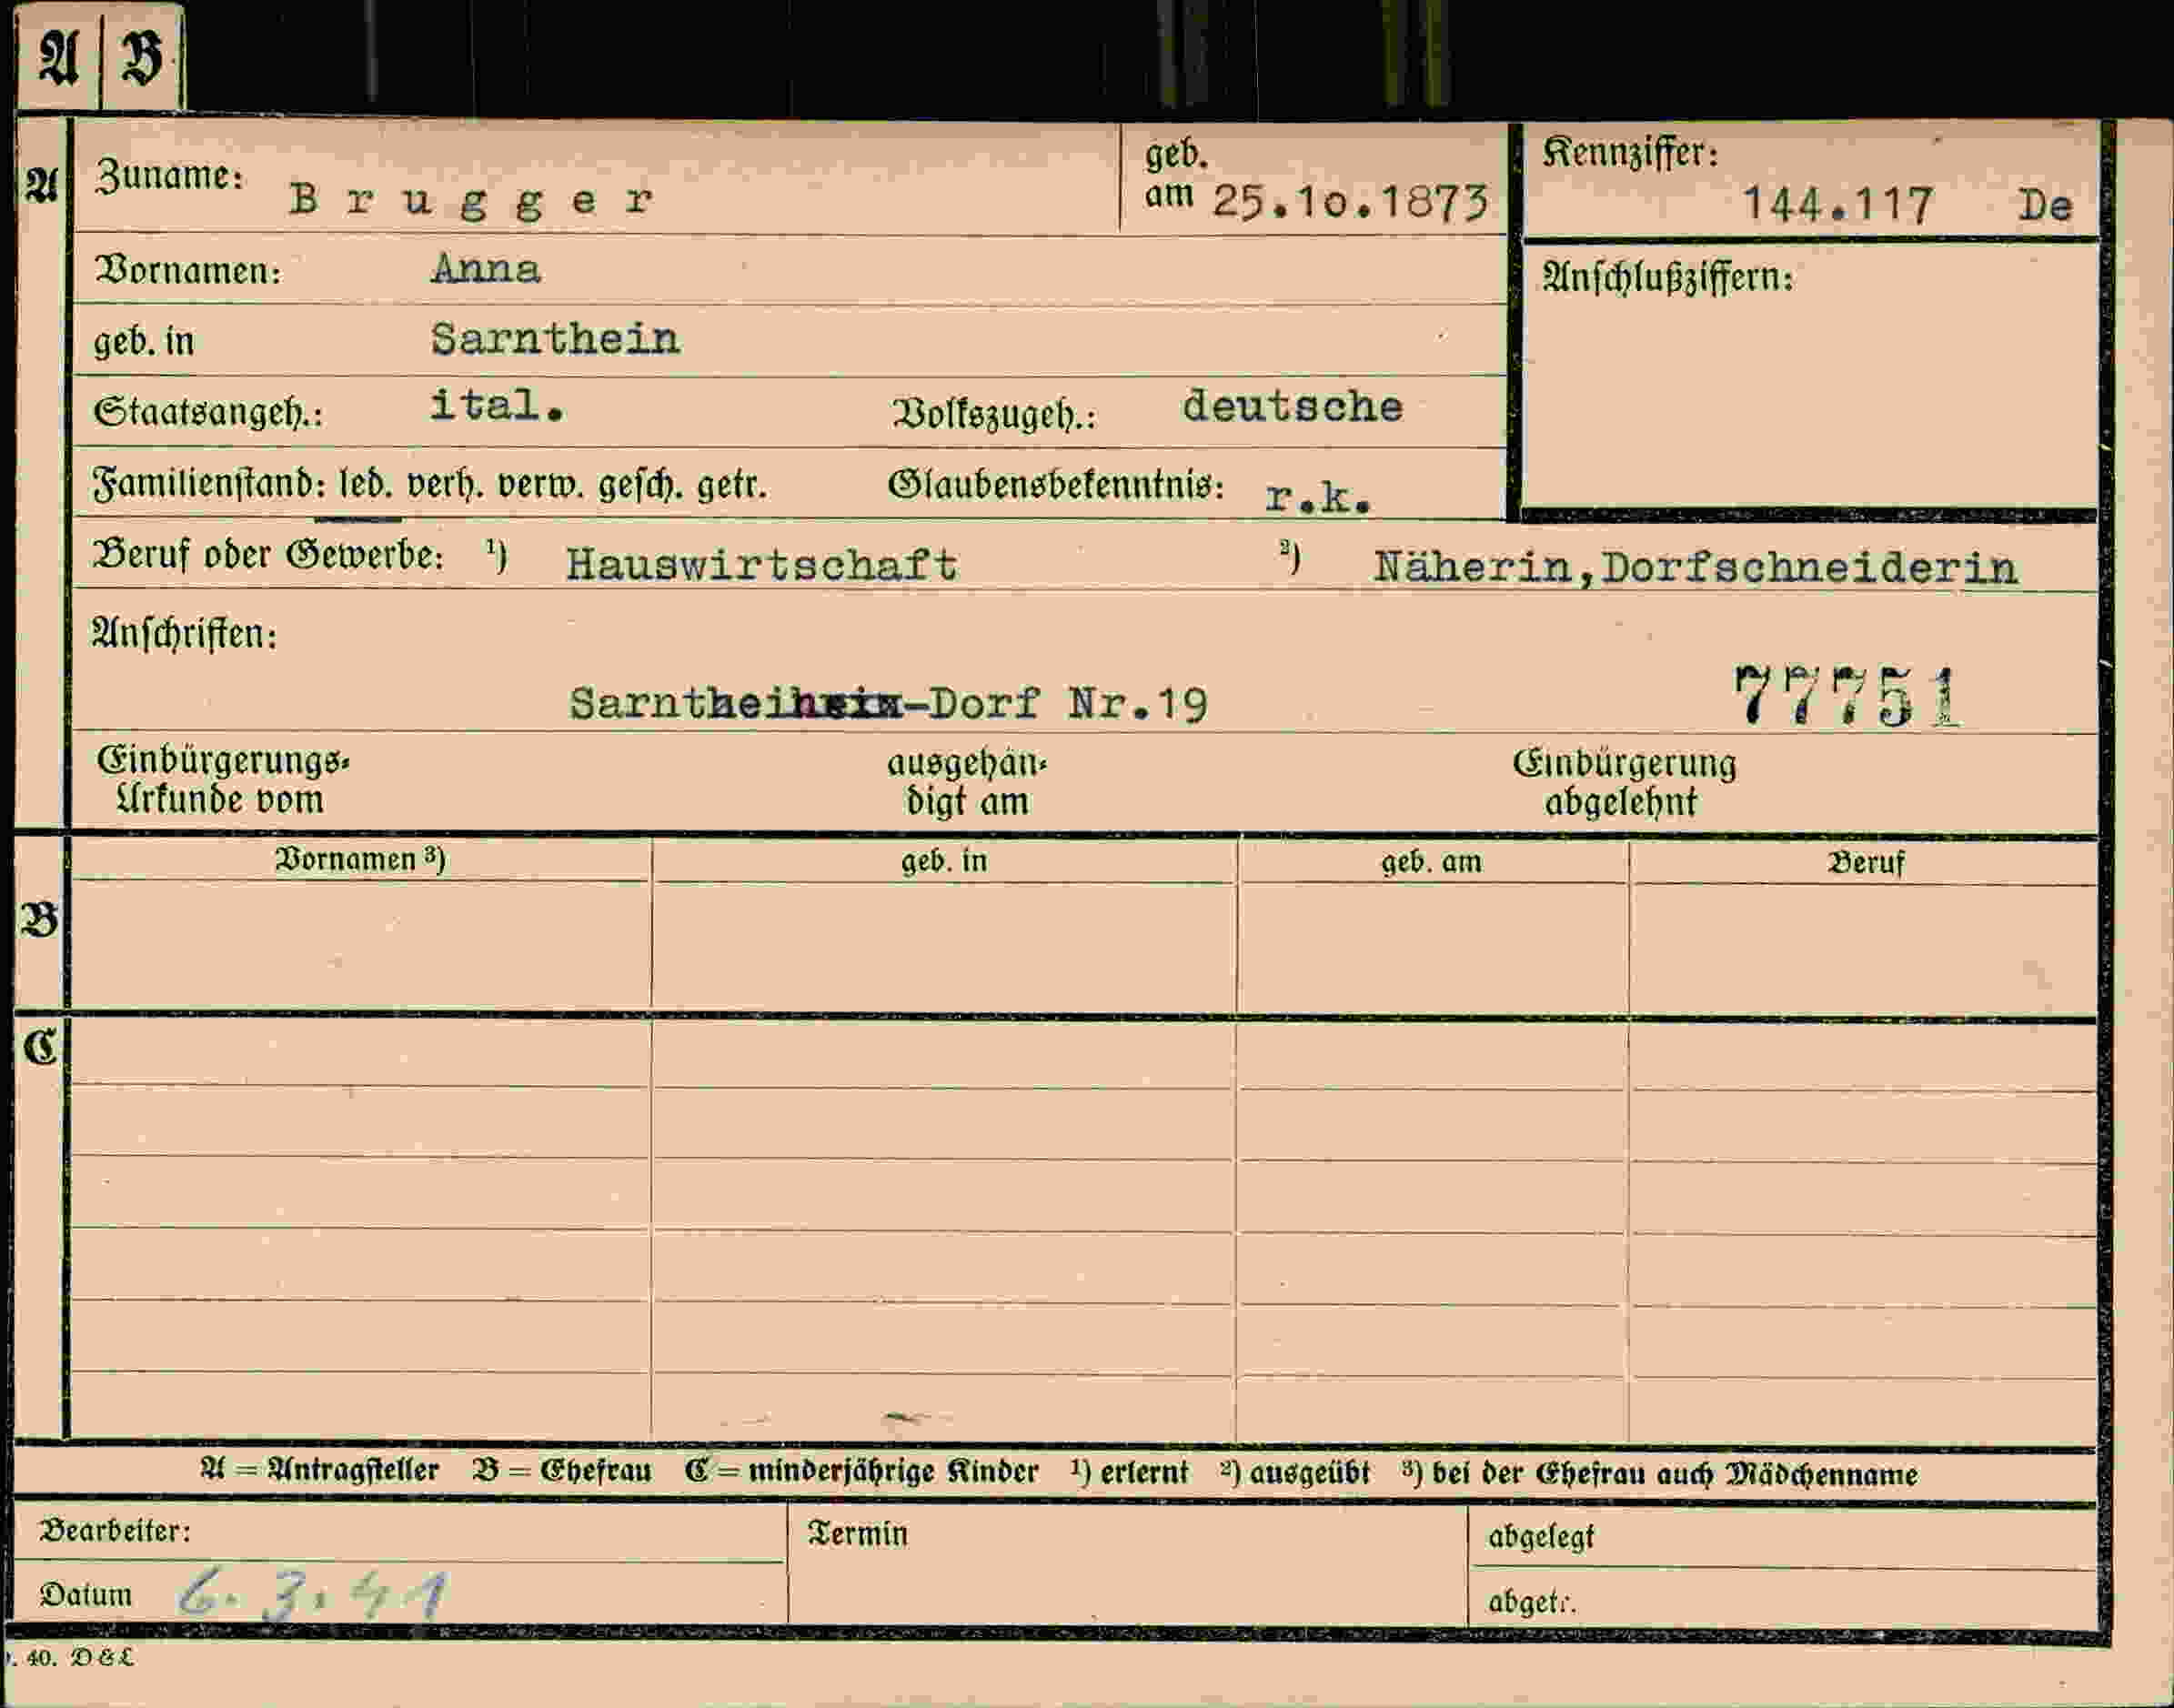 A B
A Zuname: Brugger geb. am 25.10.1873 Kennziffer: 144.117 De
Vornamen: Anna Anschlußziffern:
geb. in Sarnthein
Staatsangeh.: ital. Volkszugeh.: deutsche
Familienstand: led. verh. verw. gesch. getr. Glaubensbekenntnis: r.k.
Beruf oder Gewerbe: ¹) Hauswirtschaft ²) Näherin,Dorfschneiderin
Anschriften:
Sarnthein-Dorf Nr.19 77751
Einbürgerungs- ausgehän- Einbürgerung
Urkunde vom digt am abgelehnt
Vornamen ³) geb. in geb. am Beruf
B
C
A = Antragsteller B = Ehefrau C = minderjährige Kinder ¹) erlernt ²) ausgeübt ³) bei der Ehefrau auch Mädchenname
Bearbeiter: Termin abgelegt
Datum 6.3.41 abgetr.
. 40. D & L